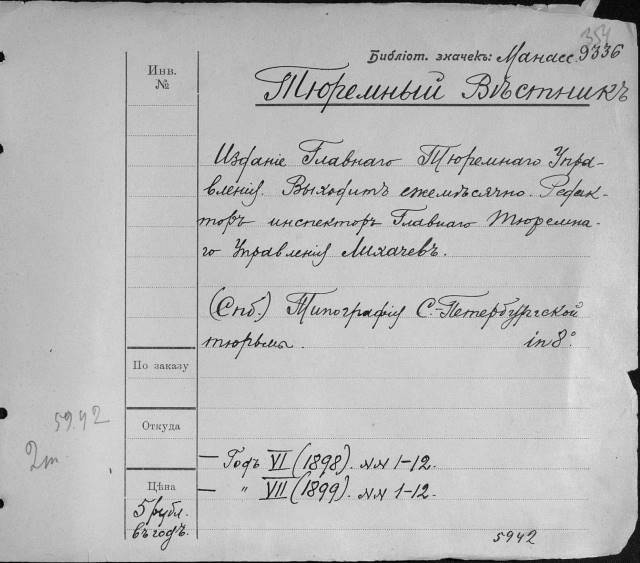 354
Библіот. значекъ: Манасс. 9336
Инв.
№
Тюремный Вѣстникъ
Изданіе Главнаго Тюремнаго Упра-
вленія. Выходитъ ежемѣсячно. Редак-
торъ инспекторъ Главнаго Тюремна-
го Управленія Лихачевъ.
(Спб.) Типографія С.-Петербургской
тюрьмы. in 8°.
По заказу
Откуда
5942
2т.
— Годъ VI (1898). NN 1-12.
— " VII (1899). NN 1-12.
Цѣна
5 рубл.
въ годъ.
5942